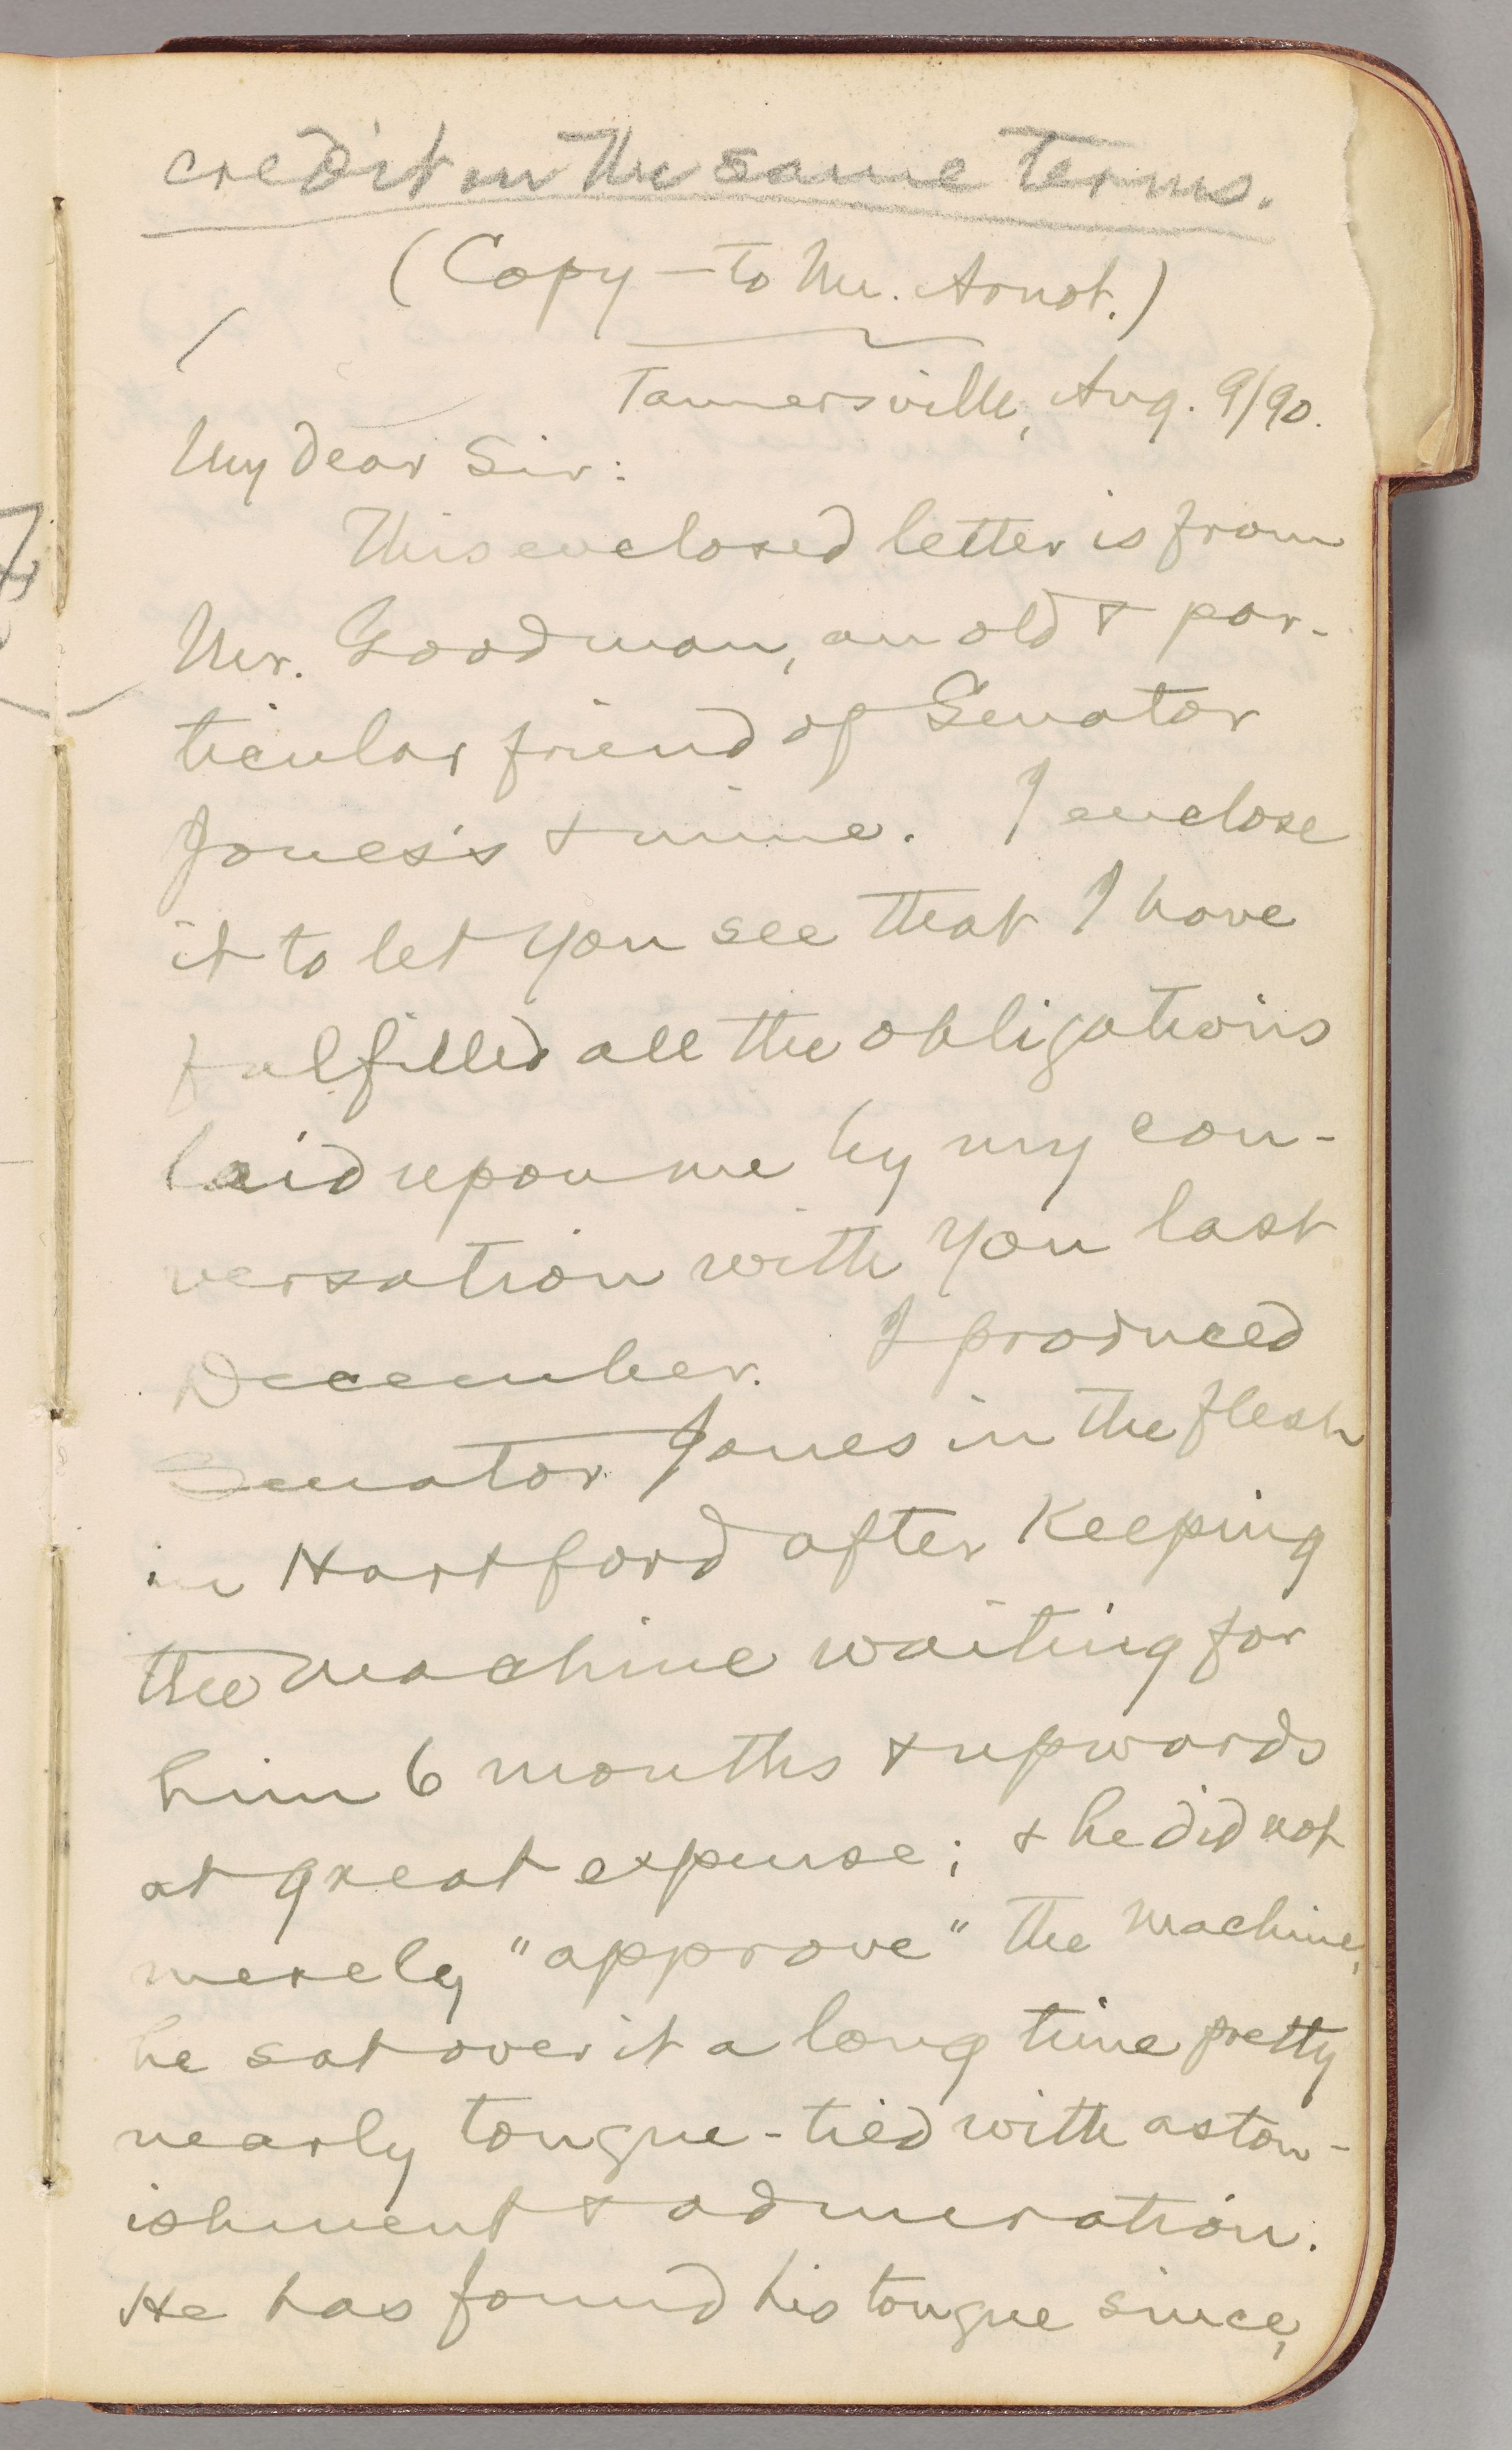 credit on the same terms.
(Copy — to Mr. Arnot.)
Tannersville, Aug. 9/90.
My Dear Sir:
This enclosed letter is from
Mr. Goodman, an old & par-
ticular friend of Senator
Jones's & mine. I enclose
it to let you see that I have
fulfilled all the obligations
laid upon me by my con-
versation with you last
December. I produced
Senator Jones in the flesh
in Hartford after keeping
the machine waiting for
him 6 months & upwards
at great expense; & he did not
merely "approve" the machine,
he sat over it a long time pretty
nearly tongue-tied with aston-
ishment & admiration.
He has found his tongue since,